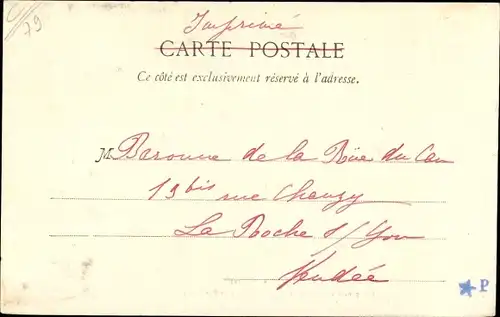 79
Imprimé
CARTE POSTALE
Ce côté est exclusivement réservé à l'adresse.
M Baronne de la Rüe du Can
13 bis rue Chanzy
La Roche s/ Yon
Vendée
P